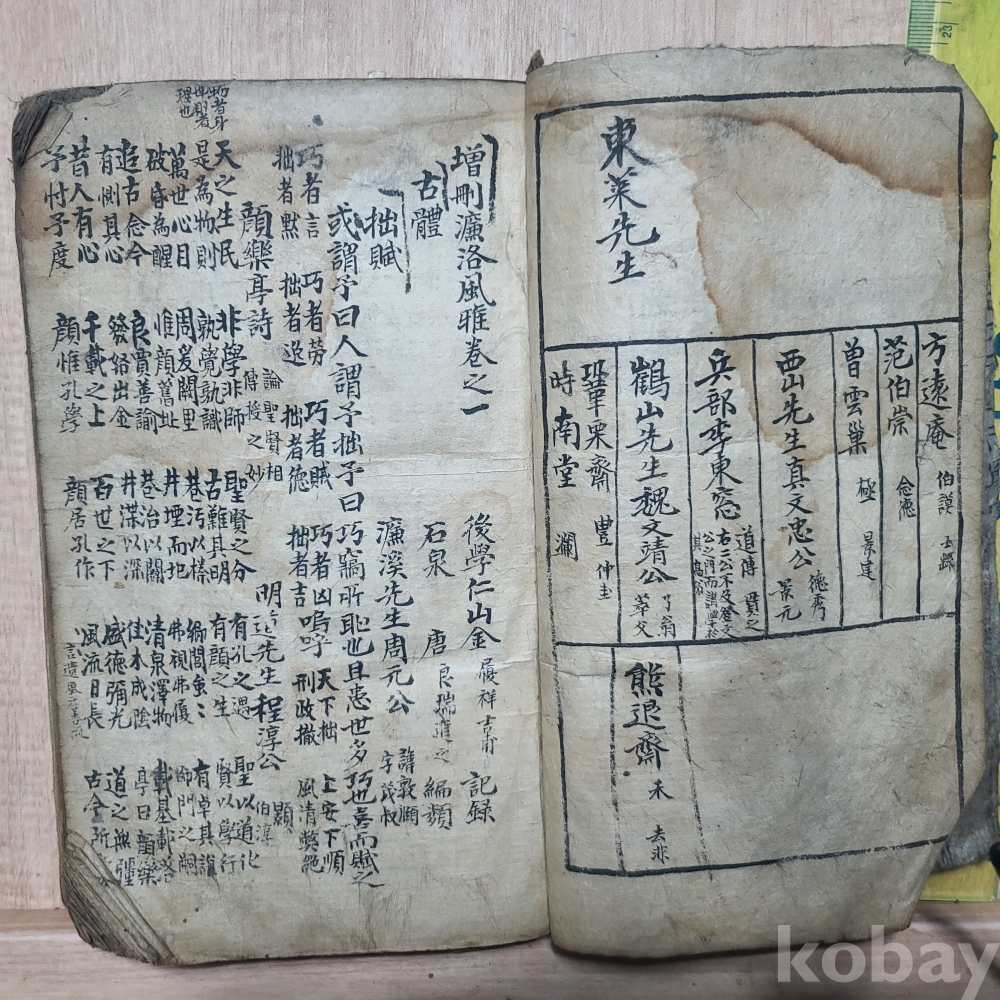 東萊先生
方遠庵 伯謨 士繇
范伯崇 念德
曾雲巢 極 景建
西山先生真文忠公 德秀 景元
兵部李東窓 道傳 貫之
右二公不及登文公之門而講
鶴山先生魏文靖公 了翁 華父
鞏栗齋 豐 仲至
時南堂 瀾
熊退齋 禾 去非
增刪濂洛風雅卷之一
後學仁山金 履祥吉甫 記錄
古體
石泉 唐 良瑞進之 編類
拙賦
濂溪先生周元公 諱敦頤 字茂叔
或謂予曰人謂予拙予曰巧竊所恥也且患世多巧也喜而賦之
巧者言 巧者勞 巧者賊 巧者凶嗚呼 天下拙 上安下順
拙者默 拙者逸 拙者德 拙者吉 刑政撤 風清獘絶
顏樂亭詩 論聖賢相傳授之妙 明道先生程淳公 顥 伯淳
天之生民 非學非師 聖賢之分 有孔之遇 聖以道化
是為物則 孰覺孰識 古難其明 有顏之生 賢以學行
萬世心目 周爰闕里 巷汚以榛 鄉閭蚩〻 有卓其誼
破昏為醒 惟顏舊址 井堙而圮 弗視弗履 師門之嗣
追古念今 良賈善諭 巷治以闢 清泉澤物 載基載落
有惻其心 發帑出金 井渫以深 佳木成陰 亭曰顏樂
昔人有心 千載之上 百世之下 盛德彌光 道之無疆
予忖予度 顏惟孔學 顏居孔作 風流日長 古今所
物者身
世賢者
理也
23
kobay